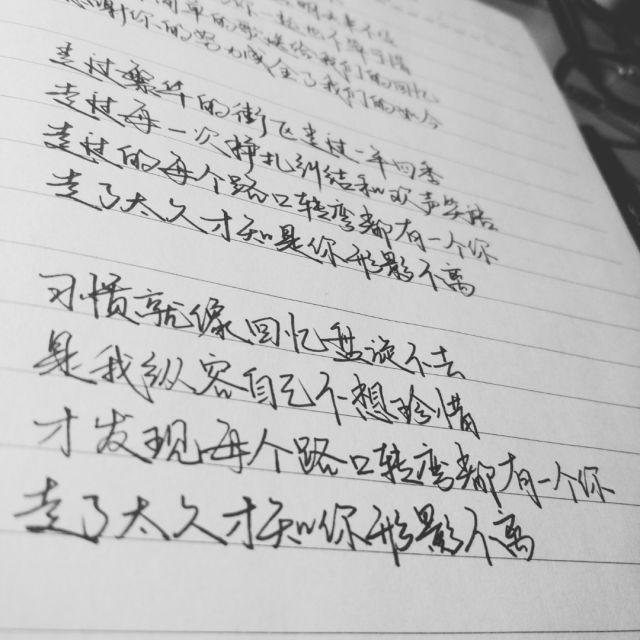 感谢你的努力成全了我们的
走过繁华的街 飞走过一年四季
走过每一次挣扎纠结和欢声笑语
走过的每个路口转弯都有一个你
走了太久才知是你形影不离
习惯就像回忆盘旋不去
是我纵容自己不想珍惜
才发现每个路口转弯都有一个你
走了太久才知你形影不离